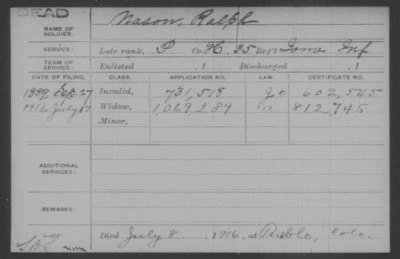 DEAD
NAME OF SOLDIER: Nason, Ralph
SERVICE: Late rank, P Co H. 35 Reg't Iowa Inf
TERM OF SERVICE: Enlisted , 1 Discharged , 1
DATE OF FILING. CLASS. APPLICATION NO. LAW CERTIFICATE NO.
1889 Sep. 27 Invalid, 731,518 602,545
1916 July 17 Widow, 1,069,289 812,745
Minor,
ADDITIONAL SERVICES:
REMARKS:
Died July 8 , 1916, at Pueblo, Colo.